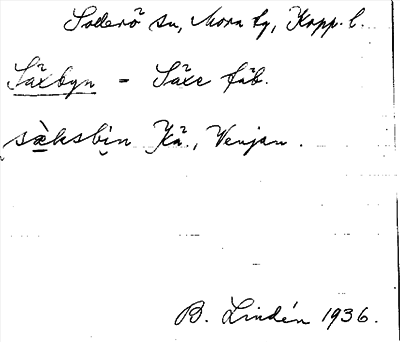 Sollerö sn, Mora tg, Kopp. l.
Säxbyn - Säxe fäb.
sæ̀ksbin Kä., Venjan.
B. Lindén 1936.